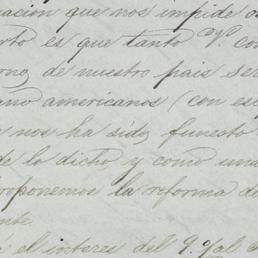 uacion que nos impide o
rto es que tanto yo. con
rno, de nuestro pais ser
ano americanos (con es
e nos ha sido, funesto
de lo dicho, y como una
proponemos la reforma de
nte.
el interes del 9. % al